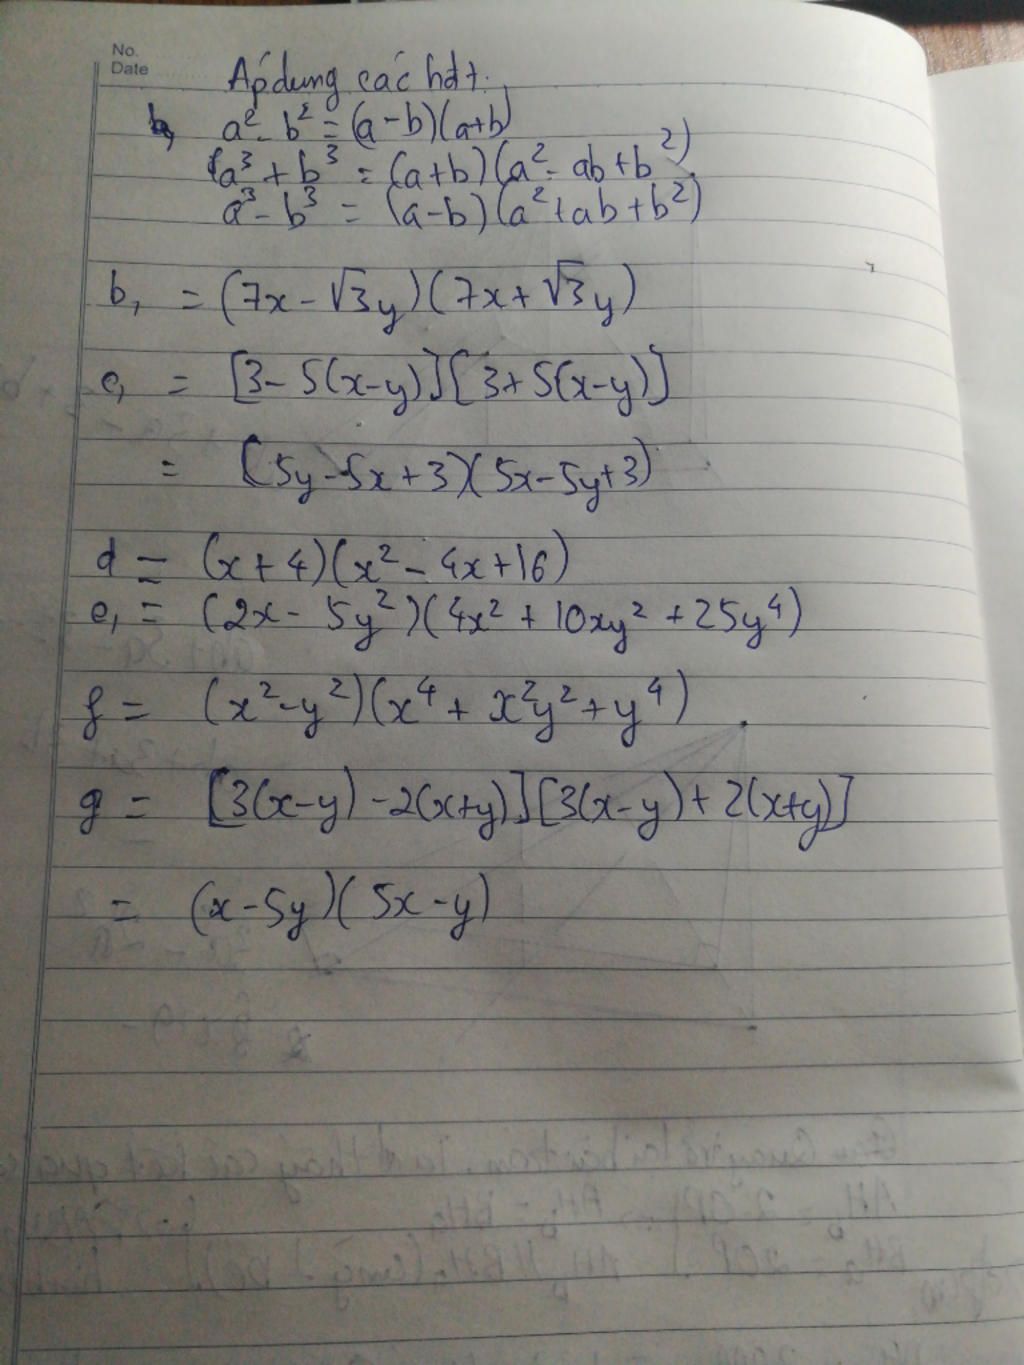 No.
Date
Áp dụng các hđt.
b, a² - b² = (a-b)(a+b)
a³ + b³ = (a+b)(a² - ab + b²)
a³ - b³ = (a-b)(a² + ab + b²)
b, = (7x - √3y)(7x + √3y)
c, = [3 - 5(x-y)][3 + 5(x-y)]
= (5y - 5x + 3)(5x - 5y + 3)
d = (x + 4)(x² - 4x + 16)
e, = (2x - 5y²)(4x² + 10xy² + 25y⁴)
f = (x² - y²)(x⁴ + x²y² + y⁴)
g = [3(x-y) - 2(x+y)][3(x-y) + 2(x+y)]
= (x - 5y)(5x - y)